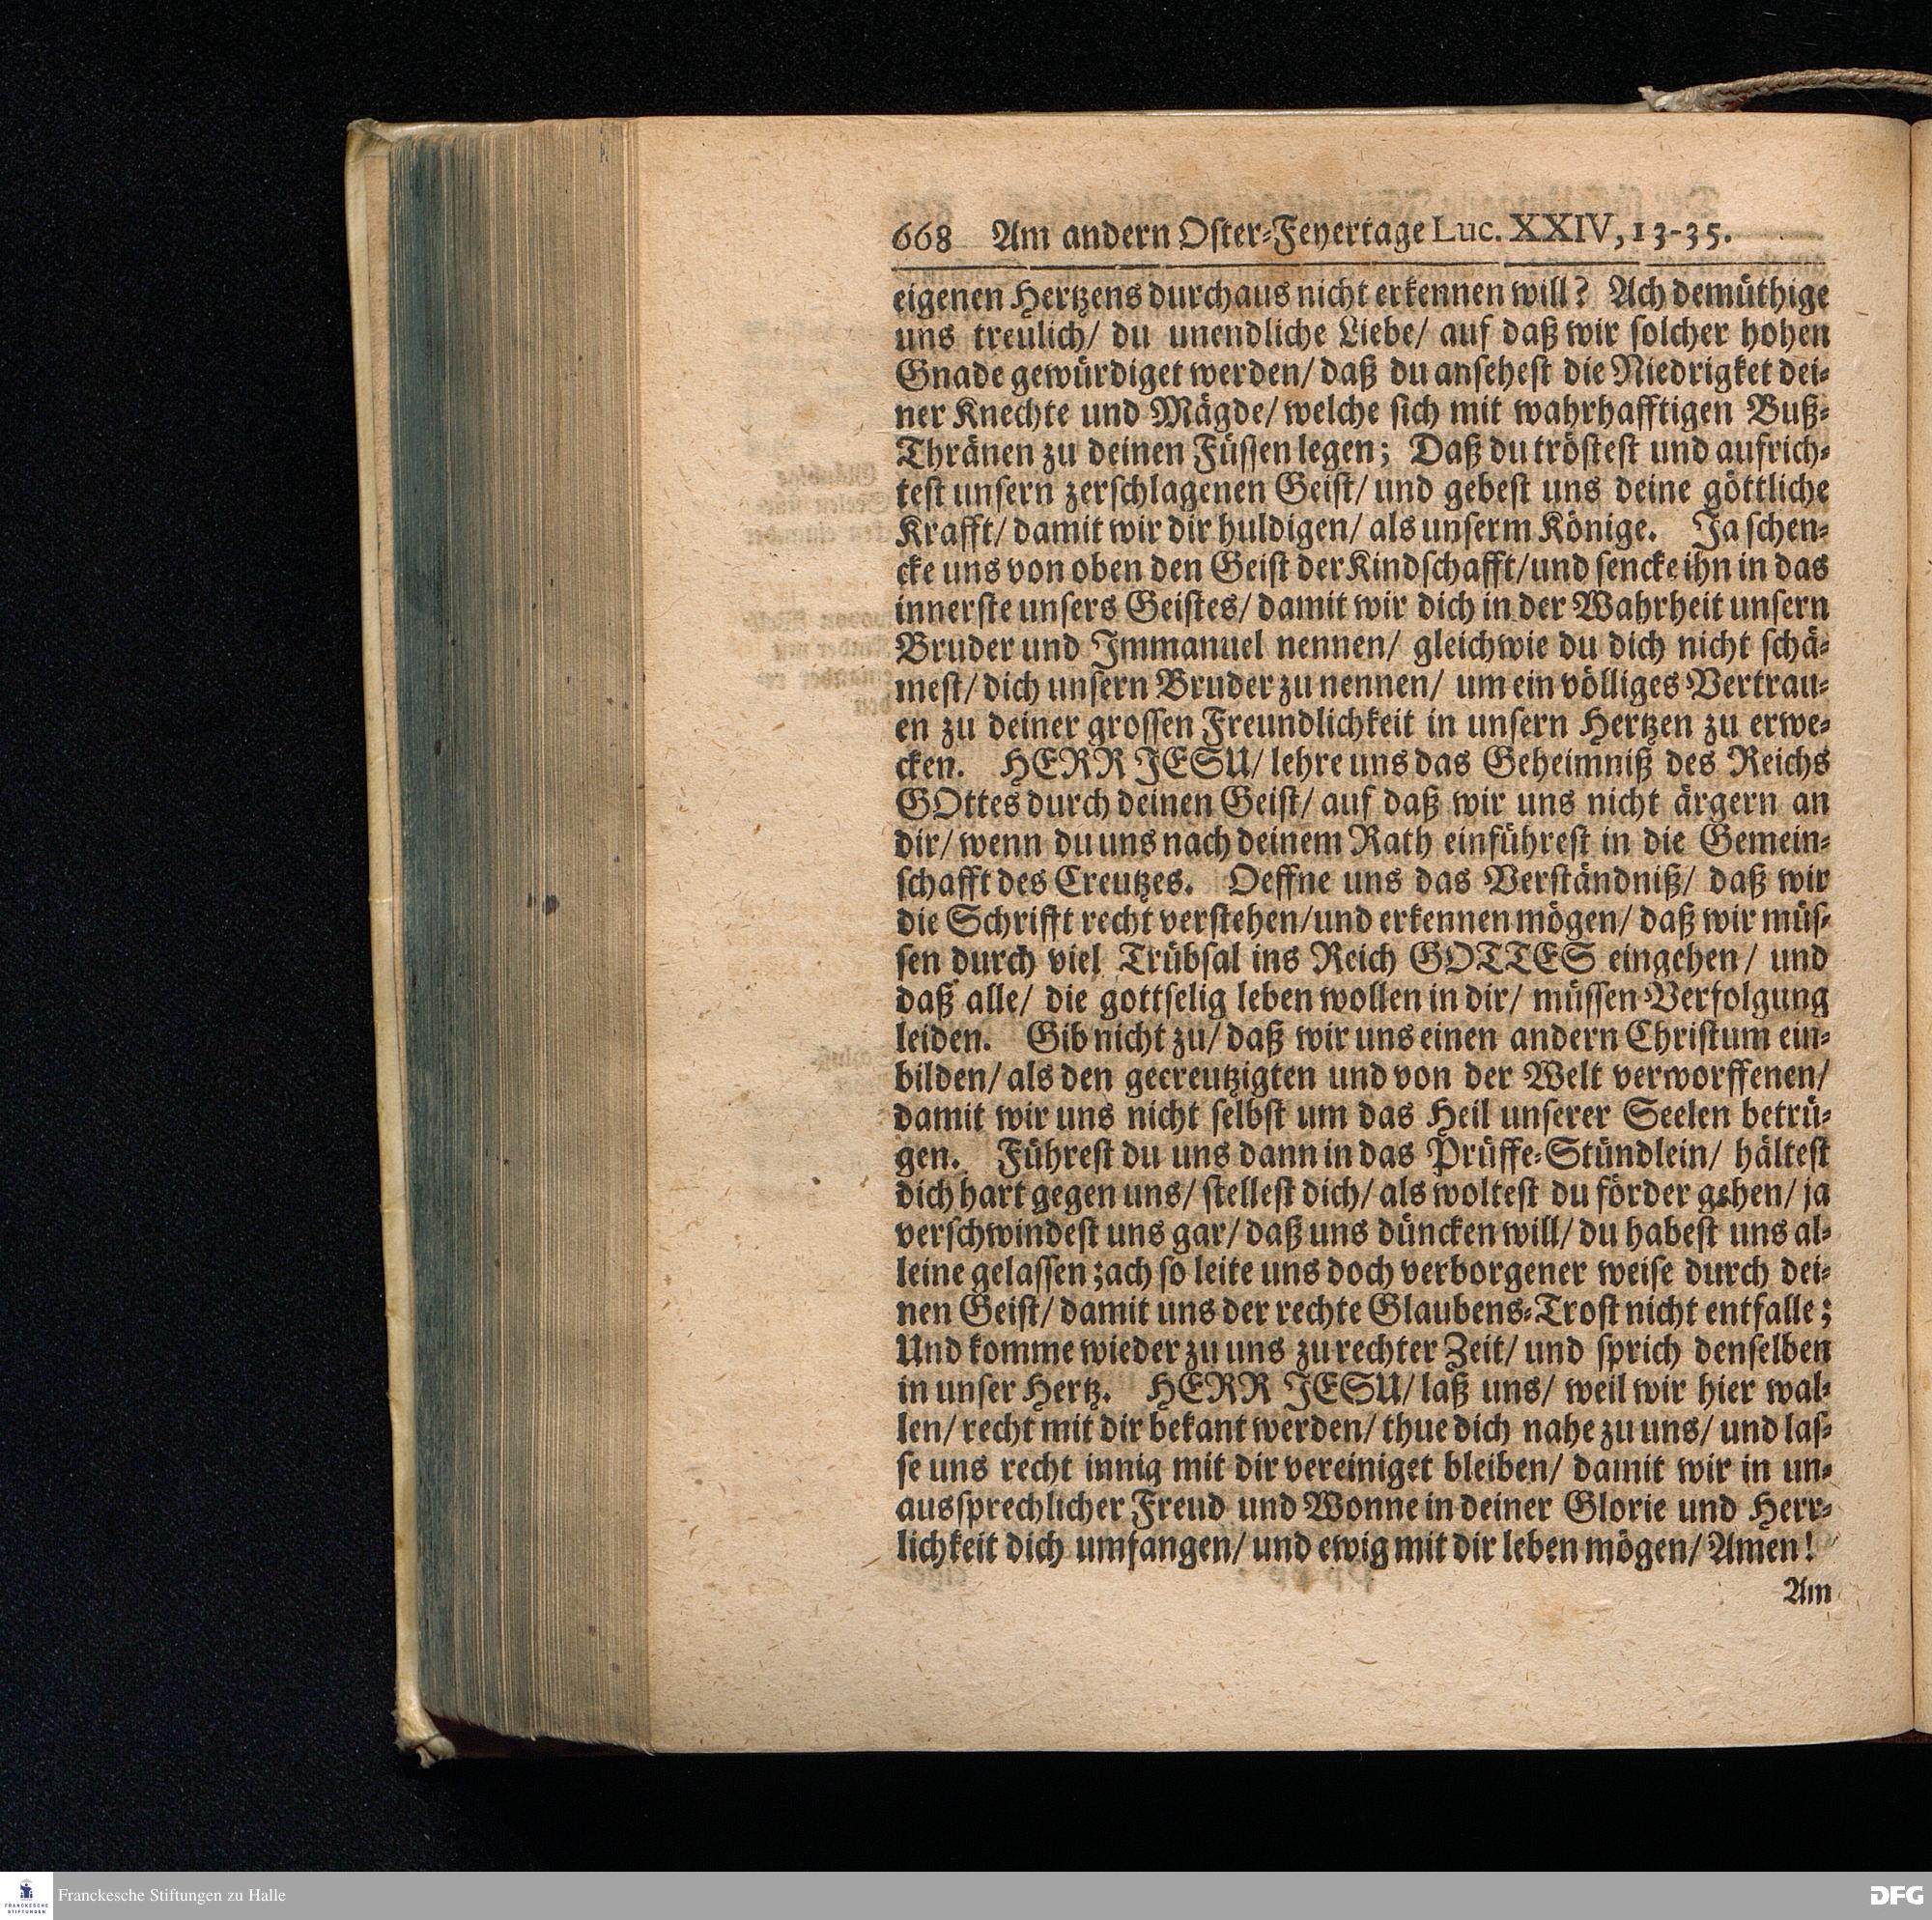 668 Am andern Oſter-Feyertage Luc. XXIV, 13-35.
eigenen Hertzens durchaus nicht erkennen will? Ach demüthige
uns treulich/ du unendliche Liebe/ auf daß wir ſolcher hohen
Gnade gewürdiget werden/ daß du anſeheſt die Niedrigket dei-
ner Knechte und Mägde/ welche ſich mit wahrhafftigen Buß-
Thränen zu deinen Füſſen legen; Daß du tröſteſt und aufrich-
teſt unſern zerſchlagenen Geiſt/ und gebeſt uns deine göttliche
Krafft/ damit wir dir huldigen/ als unſerm Könige. Ja ſchen-
cke uns von oben den Geiſt der Kindſchafft/ und ſencke ihn in das
innerſte unſers Geiſtes/ damit wir dich in der Wahrheit unſern
Bruder und Immanuel nennen/ gleichwie du dich nicht ſchä-
meſt/ dich unſern Bruder zu nennen/ um ein völliges Vertrau-
en zu deiner groſſen Freundlichkeit in unſern Hertzen zu erwe-
cken. HERR JESU/ lehre uns das Geheimniß des Reichs
GOttes durch deinen Geiſt/ auf daß wir uns nicht ärgern an
dir/ wenn du uns nach deinem Rath einführeſt in die Gemein-
ſchafft des Creutzes. Oeffne uns das Verſtändniß/ daß wir
die Schrifft recht verſtehen/ und erkennen mögen/ daß wir müſ-
ſen durch viel Trübſal ins Reich GOTTES eingehen/ und
daß alle/ die gottſelig leben wollen in dir/ müſſen Verfolgung
leiden. Gib nicht zu/ daß wir uns einen andern Chriſtum ein-
bilden/ als den gecreutzigten und von der Welt verworffenen/
damit wir uns nicht ſelbſt um das Heil unſerer Seelen betrü-
gen. Führeſt du uns dann in das Prüffe-Stündlein/ hälteſt
dich hart gegen uns/ ſtelleſt dich/ als wolteſt du förder gehen/ ja
verſchwindeſt uns gar/ daß uns düncken will/ du habeſt uns al-
leine gelaſſen; ach ſo leite uns doch verborgener weiſe durch dei-
nen Geiſt/ damit uns der rechte Glaubens-Troſt nicht entfalle;
Und komme wieder zu uns zu rechter Zeit/ und ſprich denſelben
in unſer Hertz. HERR JESU/ laß uns/ weil wir hier wal-
len/ recht mit dir bekant werden/ thue dich nahe zu uns/ und laſ-
ſe uns recht innig mit dir vereiniget bleiben/ damit wir in un-
ausſprechlicher Freud und Wonne in deiner Glorie und Herr-
lichkeit dich umfangen/ und ewig mit dir leben mögen/ Amen!
Am
Franckesche Stiftungen zu Halle
FRANCKESCHE
STIFTUNGEN
DFG